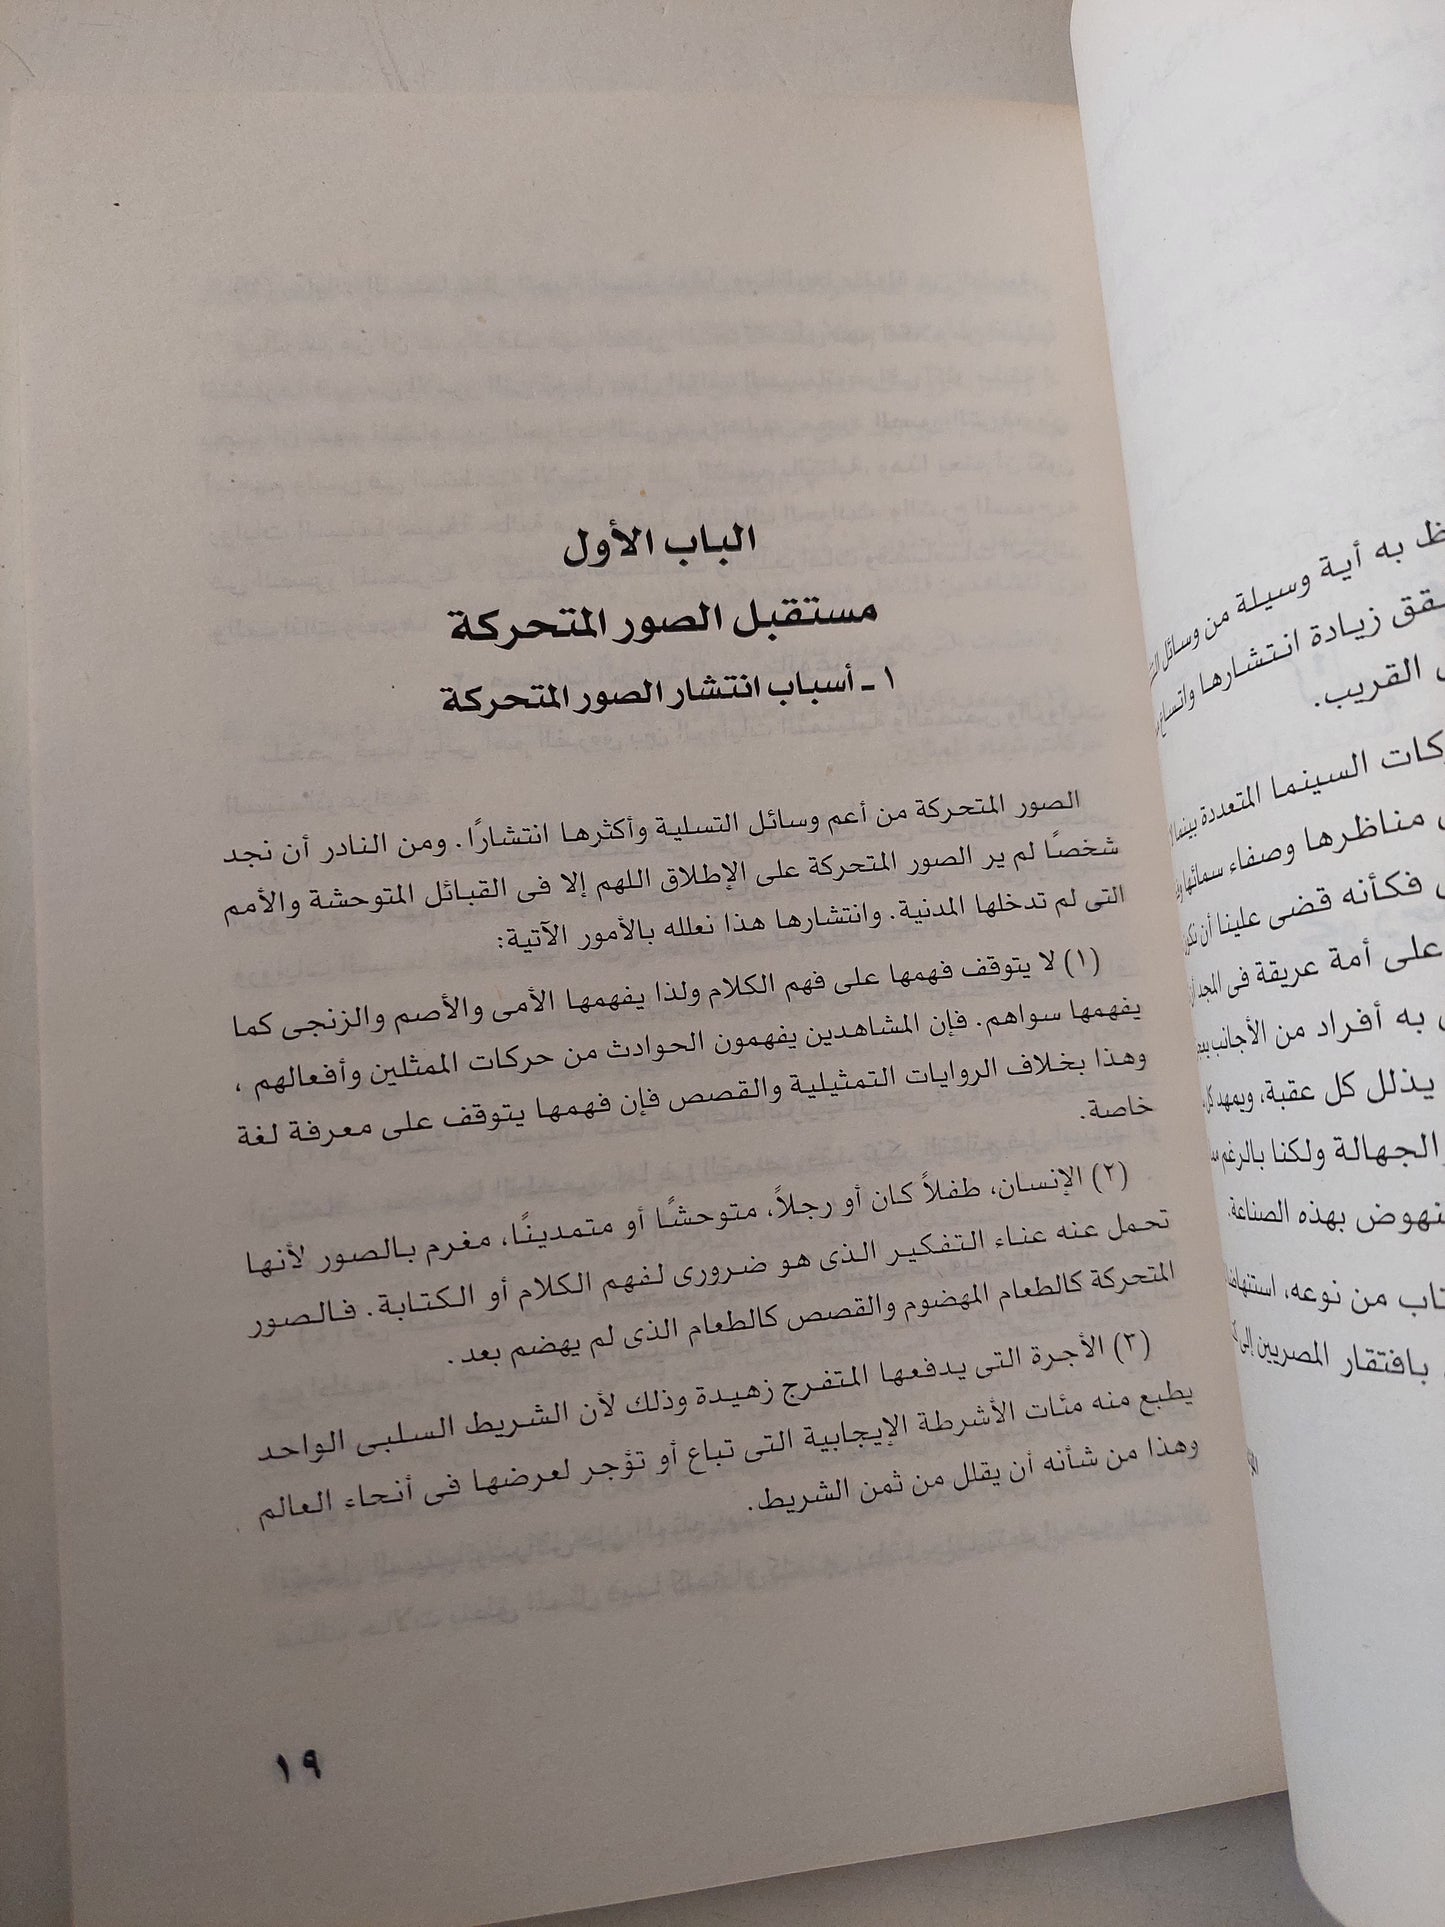 الباب الأول
مستقبل الصور المتحركة
١ ـ أسباب انتشار الصور المتحركة
الصور المتحركة من أعم وسائل التسلية وأكثرها انتشارًا. ومن النادر أن نجد
شخصًا لم ير الصور المتحركة على الإطلاق اللهم إلا فى القبائل المتوحشة والأمم
التى لم تدخلها المدنية. وانتشارها هذا نعلله بالأمور الآتية:
(١) لا يتوقف فهمها على فهم الكلام ولذا يفهمها الأمى والأصم والزنجى كما
يفهمها سواهم. فإن المشاهدين يفهمون الحوادث من حركات الممثلين وأفعالهم ،
وهذا بخلاف الروايات التمثيلية والقصص فإن فهمها يتوقف على معرفة لغة
خاصة.
(٢) الإنسان، طفلاً كان أو رجلاً، متوحشًا أو متمدينًا، مغرم بالصور لأنها
تحمل عنه عناء التفكير الذى هو ضرورى لفهم الكلام أو الكتابة. فالصور
المتحركة كالطعام المهضوم والقصص كالطعام الذى لم يهضم بعد.
(٣) الأجرة التى يدفعها المتفرج زهيدة وذلك لأن الشريط السلبى الواحد
يطبع منه مئات الأشرطة الإيجابية التى تباع أو تؤجر لعرضها فى أنحاء العالم
وهذا من شأنه أن يقلل من ثمن الشريط.
١٩
به أية وسيلة من وسائل
زيادة انتشارها واتساع
القريب.
السينما المتعددة بينما
مناظرها وصفاء سمائها
فكأنه قضى علينا أن نكون
على أمة عريقة فى المجد
به أفراد من الأجانب
يذلل كل عقبة، ويمهد كل
الجهالة ولكنا بالرغم
بهذه الصناعة.
من نوعه،
بافتقار المصريين إلى